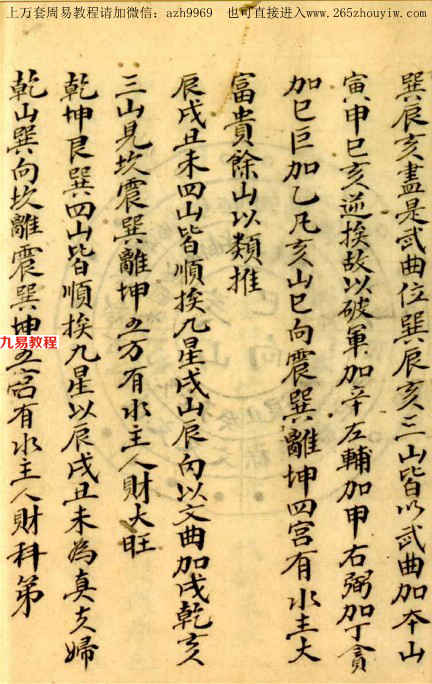 上万套周易教程请加微信：azh9969 也可直接进入www.265zhouyiw.com
巽辰亥盡是武曲位巽辰亥三山皆以武曲加本山
寅申巳亥逆挨故以破軍加辛左輔加甲右弼加丁貪
加巳巨加乙凡亥山巳向震巽離坤四宮有水主大
富貴餘山以類推
辰戌丑未四山皆順挨九星戌山辰向以文曲加戌乾亥
三山見坎震巽離坤五方有水主人財大旺
乾坤艮巽四山皆順挨九星以辰戌丑未為真夫婦
乾山巽向坎離震巽坤五宮有水主人財科第
九易教程